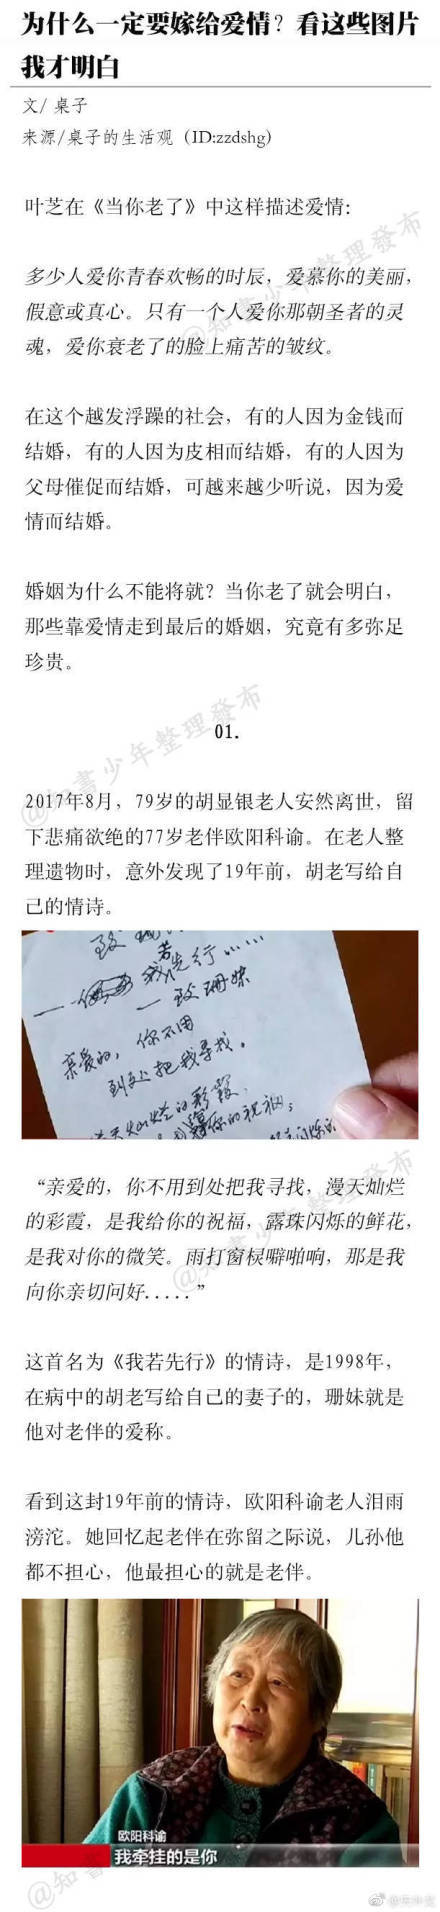 为什么一定要嫁给爱情？看这些图片
我才明白
文/ 桌子
来源/桌子的生活观（ID:zzdshg）
叶芝在《当你老了》中这样描述爱情：
多少人爱你青春欢畅的时辰，爱慕你的美丽，
假意或真心。只有一个人爱你那朝圣者的灵
魂，爱你衰老了的脸上痛苦的皱纹。
在这个越发浮躁的社会，有的人因为金钱而
结婚，有的人因为皮相而结婚，有的人因为
父母催促而结婚，可越来越少听说，因为爱
情而结婚。
婚姻为什么不能将就？当你老了就会明白，
那些靠爱情走到最后的婚姻，究竟有多弥足
珍贵。
@知書少年整理發布
01.
2017年8月，79岁的胡显银老人安然离世，留
下悲痛欲绝的77岁老伴欧阳科谕。在老人整
理遗物时，意外发现了19年前，胡老写给自
己的情诗。
若
我先行……
——致珊妹
亲爱的，你不用
到处把我寻找。
灿烂的彩霞，
你的祝福；
“亲爱的，你不用到处把我寻找，漫天灿烂
的彩霞，是我给你的祝福，露珠闪烁的鲜花，
是我对你的微笑。雨打窗棂噼啪响，那是我
向你亲切问好.....”
@知書少年整理發布
这首名为《我若先行》的情诗，是1998年，
在病中的胡老写给自己的妻子的，珊妹就是
他对老伴的爱称。
看到这封19年前的情诗，欧阳科谕老人泪雨
滂沱。她回忆起老伴在弥留之际说，儿孙他
都不担心，他最担心的就是老伴。
欧阳科谕
我牵挂的是你